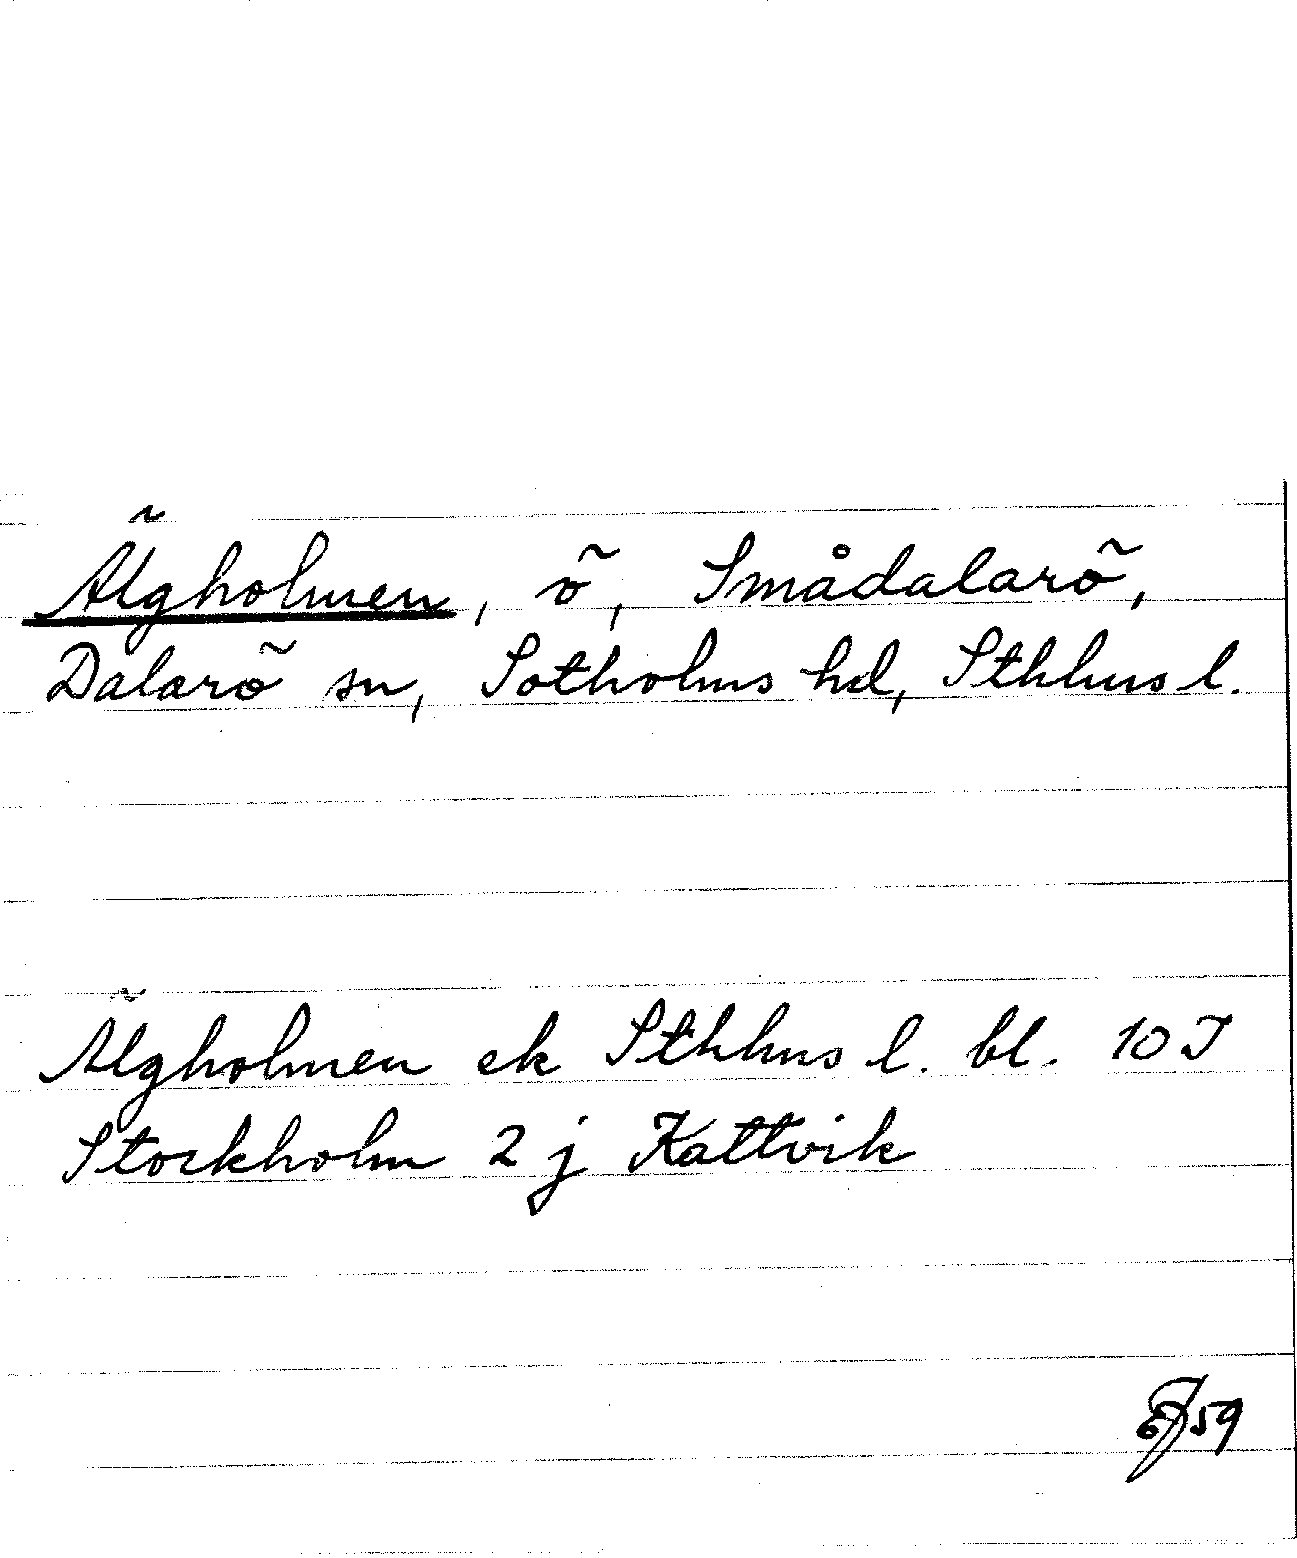 Älgholmen, ö, Smådalarö,
Dalarö sn, Sotholms hd, Sthlms l.
Älgholmen ek Sthlms l. bl. 10 I
Stockholm 2 j Kattvik
59